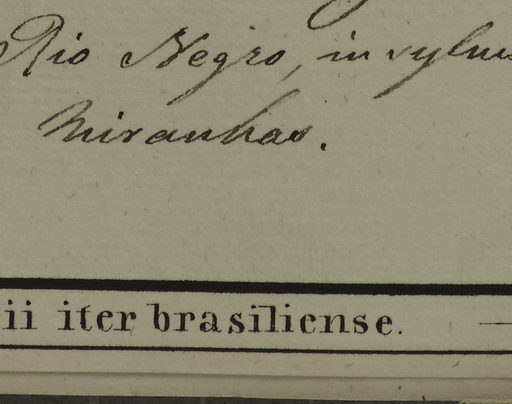 Rio Negro, in sylvis
Miranhas.
ii iter brasiliense.